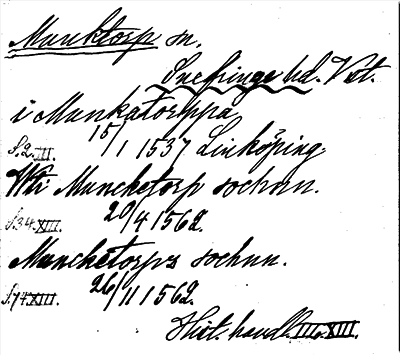 Munktorp sn.
Snefringe hd. Vst.
i Munkatorppa
S.2.III. 15/1 1537 Linköping
Wti Muncketorp sochnn.
S.34.XIII. 20/4 1562.
Muncketorps sochnn.
S.74.XIII. 26/11 1562.
Hist. handl. III o. XIII.